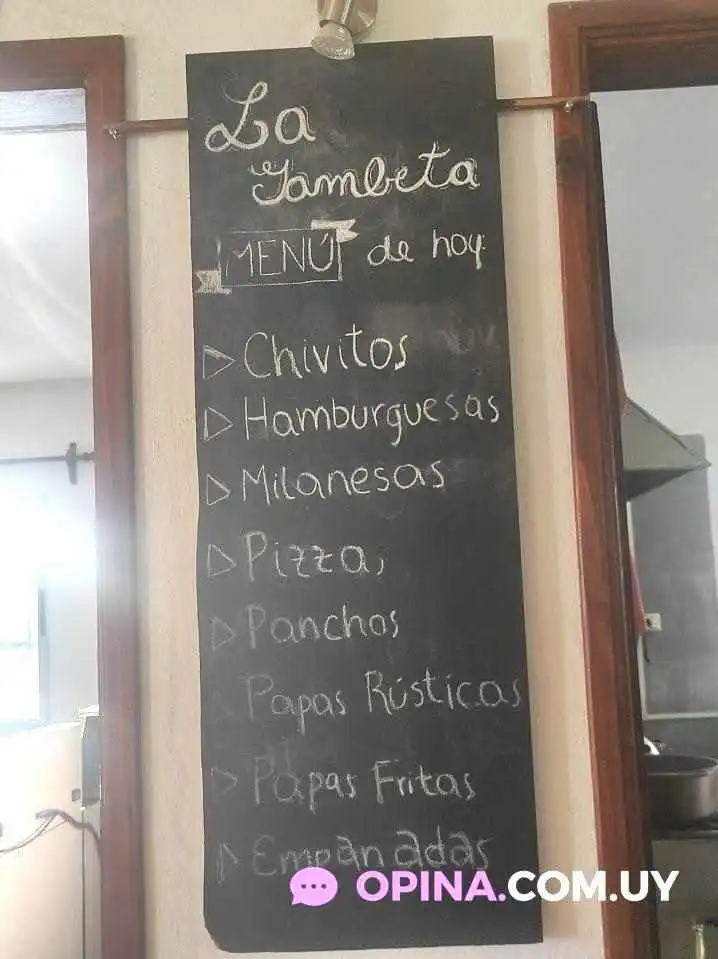 La
Gambeta
MENÚ de hoy:
Chivitos
Hamburguesas
Milanesas
Pizzas
Panchos
Papas Rústicas
Papas Fritas
Empanadas
OPINA.COM.UY